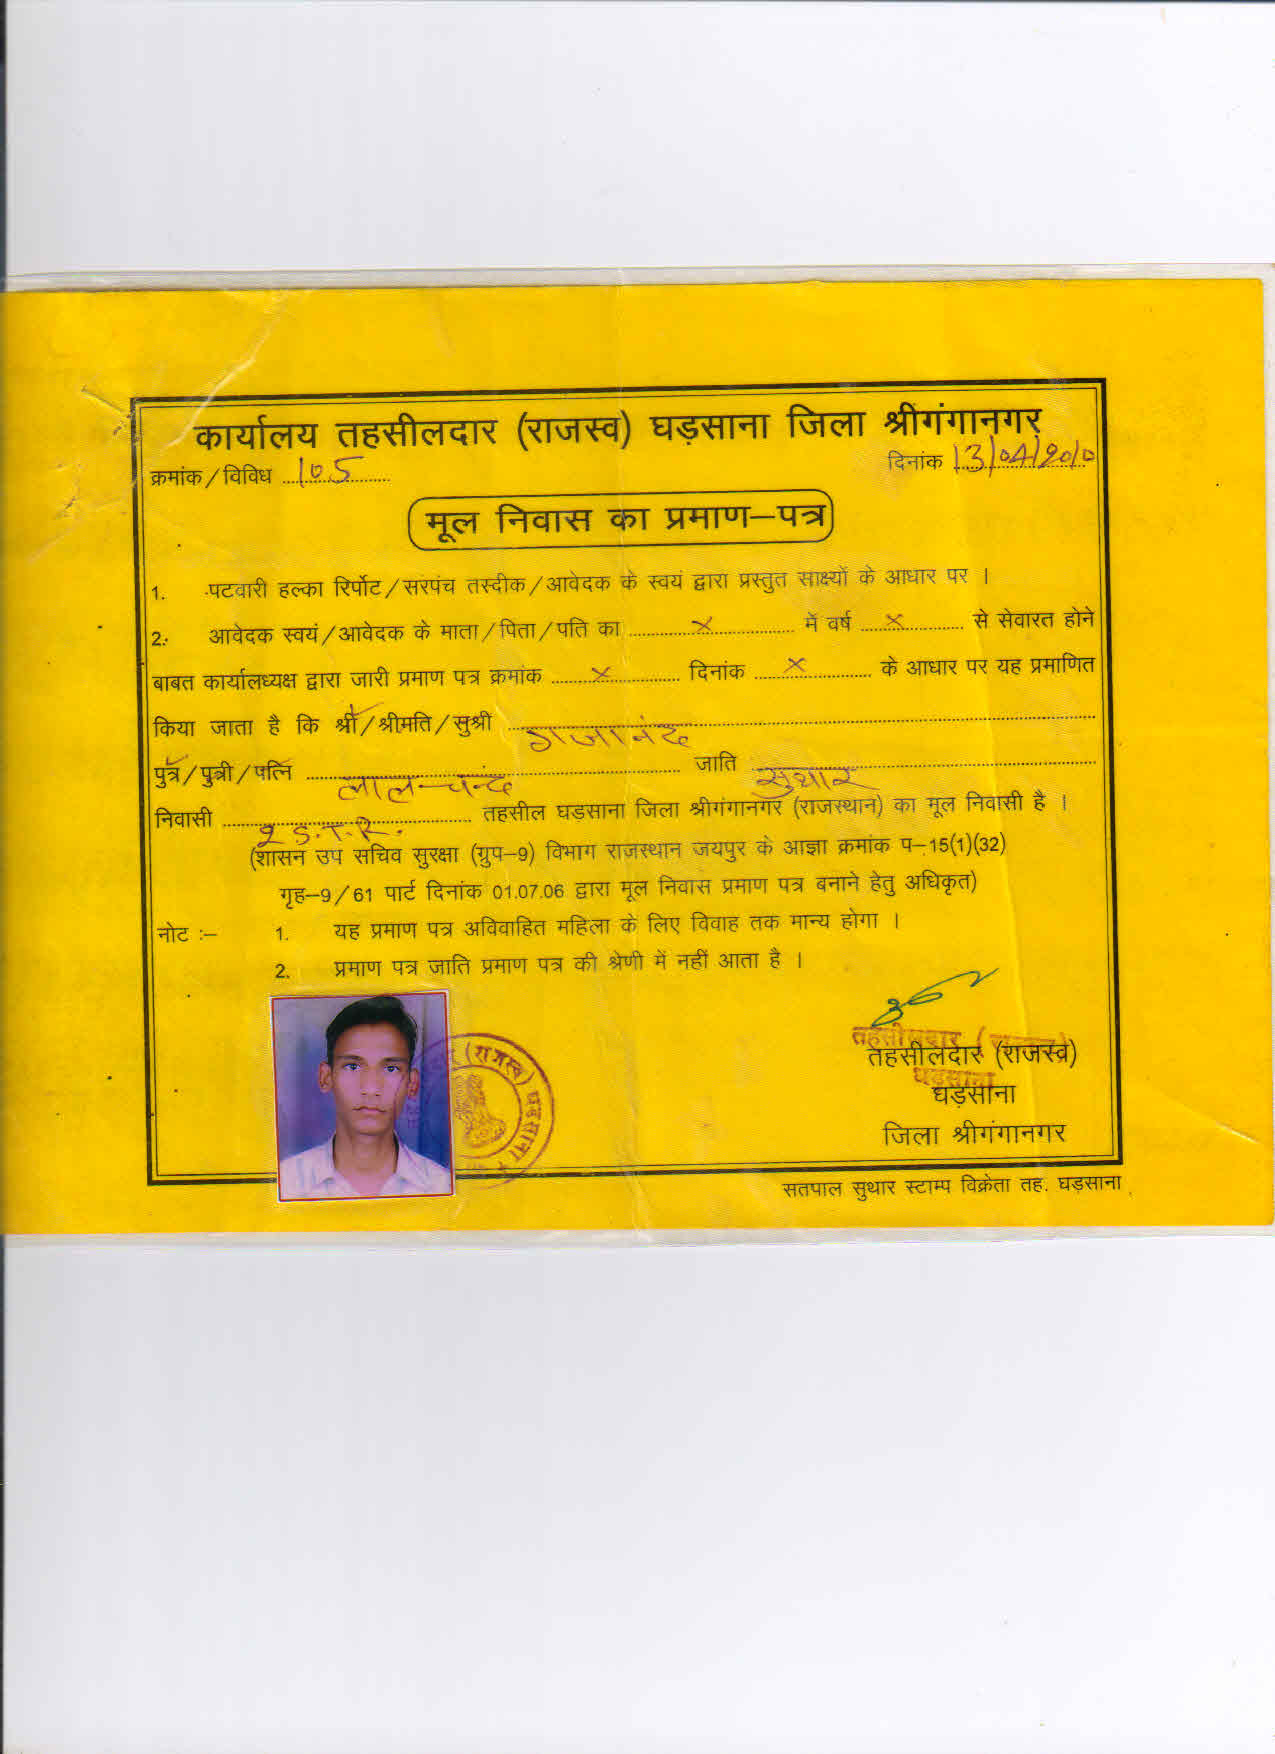 कार्यालय तहसीलदार (राजस्व) घड़साना जिला श्रीगंगानगर
क्रमांक/विविध 105 दिनांक 13/04/2010
मूल निवास का प्रमाण–पत्र
1. पटवारी हल्का रिर्पोट/सरपंच तस्दीक/आवेदक के स्वयं द्वारा प्रस्तुत साक्ष्यों के आधार पर ।
2. आवेदक स्वयं/आवेदक के माता/पिता/पति का ........ × ........ में वर्ष ..... × ..... से सेवारत होने
बाबत कार्यालध्यक्ष द्वारा जारी प्रमाण पत्र क्रमांक ..... × ..... दिनांक ..... × ..... के आधार पर यह प्रमाणित
किया जाता है कि श्री/श्रीमति/सुश्री गजानंद
पुत्र/पुत्री/पत्नि लालचन्द जाति सुथार
निवासी 2 S.T.R. तहसील घड़साना जिला श्रीगंगानगर (राजस्थान) का मूल निवासी है ।
(शासन उप सचिव सुरक्षा (ग्रुप–9) विभाग राजस्थान जयपुर के आज्ञा क्रमांक प–15(1)(32)
गृह–9/61 पार्ट दिनांक 01.07.06 द्वारा मूल निवास प्रमाण पत्र बनाने हेतु अधिकृत)
नोट :– 1. यह प्रमाण पत्र अविवाहित महिला के लिए विवाह तक मान्य होगा ।
2. प्रमाण पत्र जाति प्रमाण पत्र की श्रेणी में नहीं आता है ।
(राजस्व) घड़साना
तहसीलदार (राजस्व)
घड़साना
तहसीलदार (राजस्व)
घड़साना
जिला श्रीगंगानगर
सतपाल सुथार स्टाम्प विक्रेता तह. घड़साना